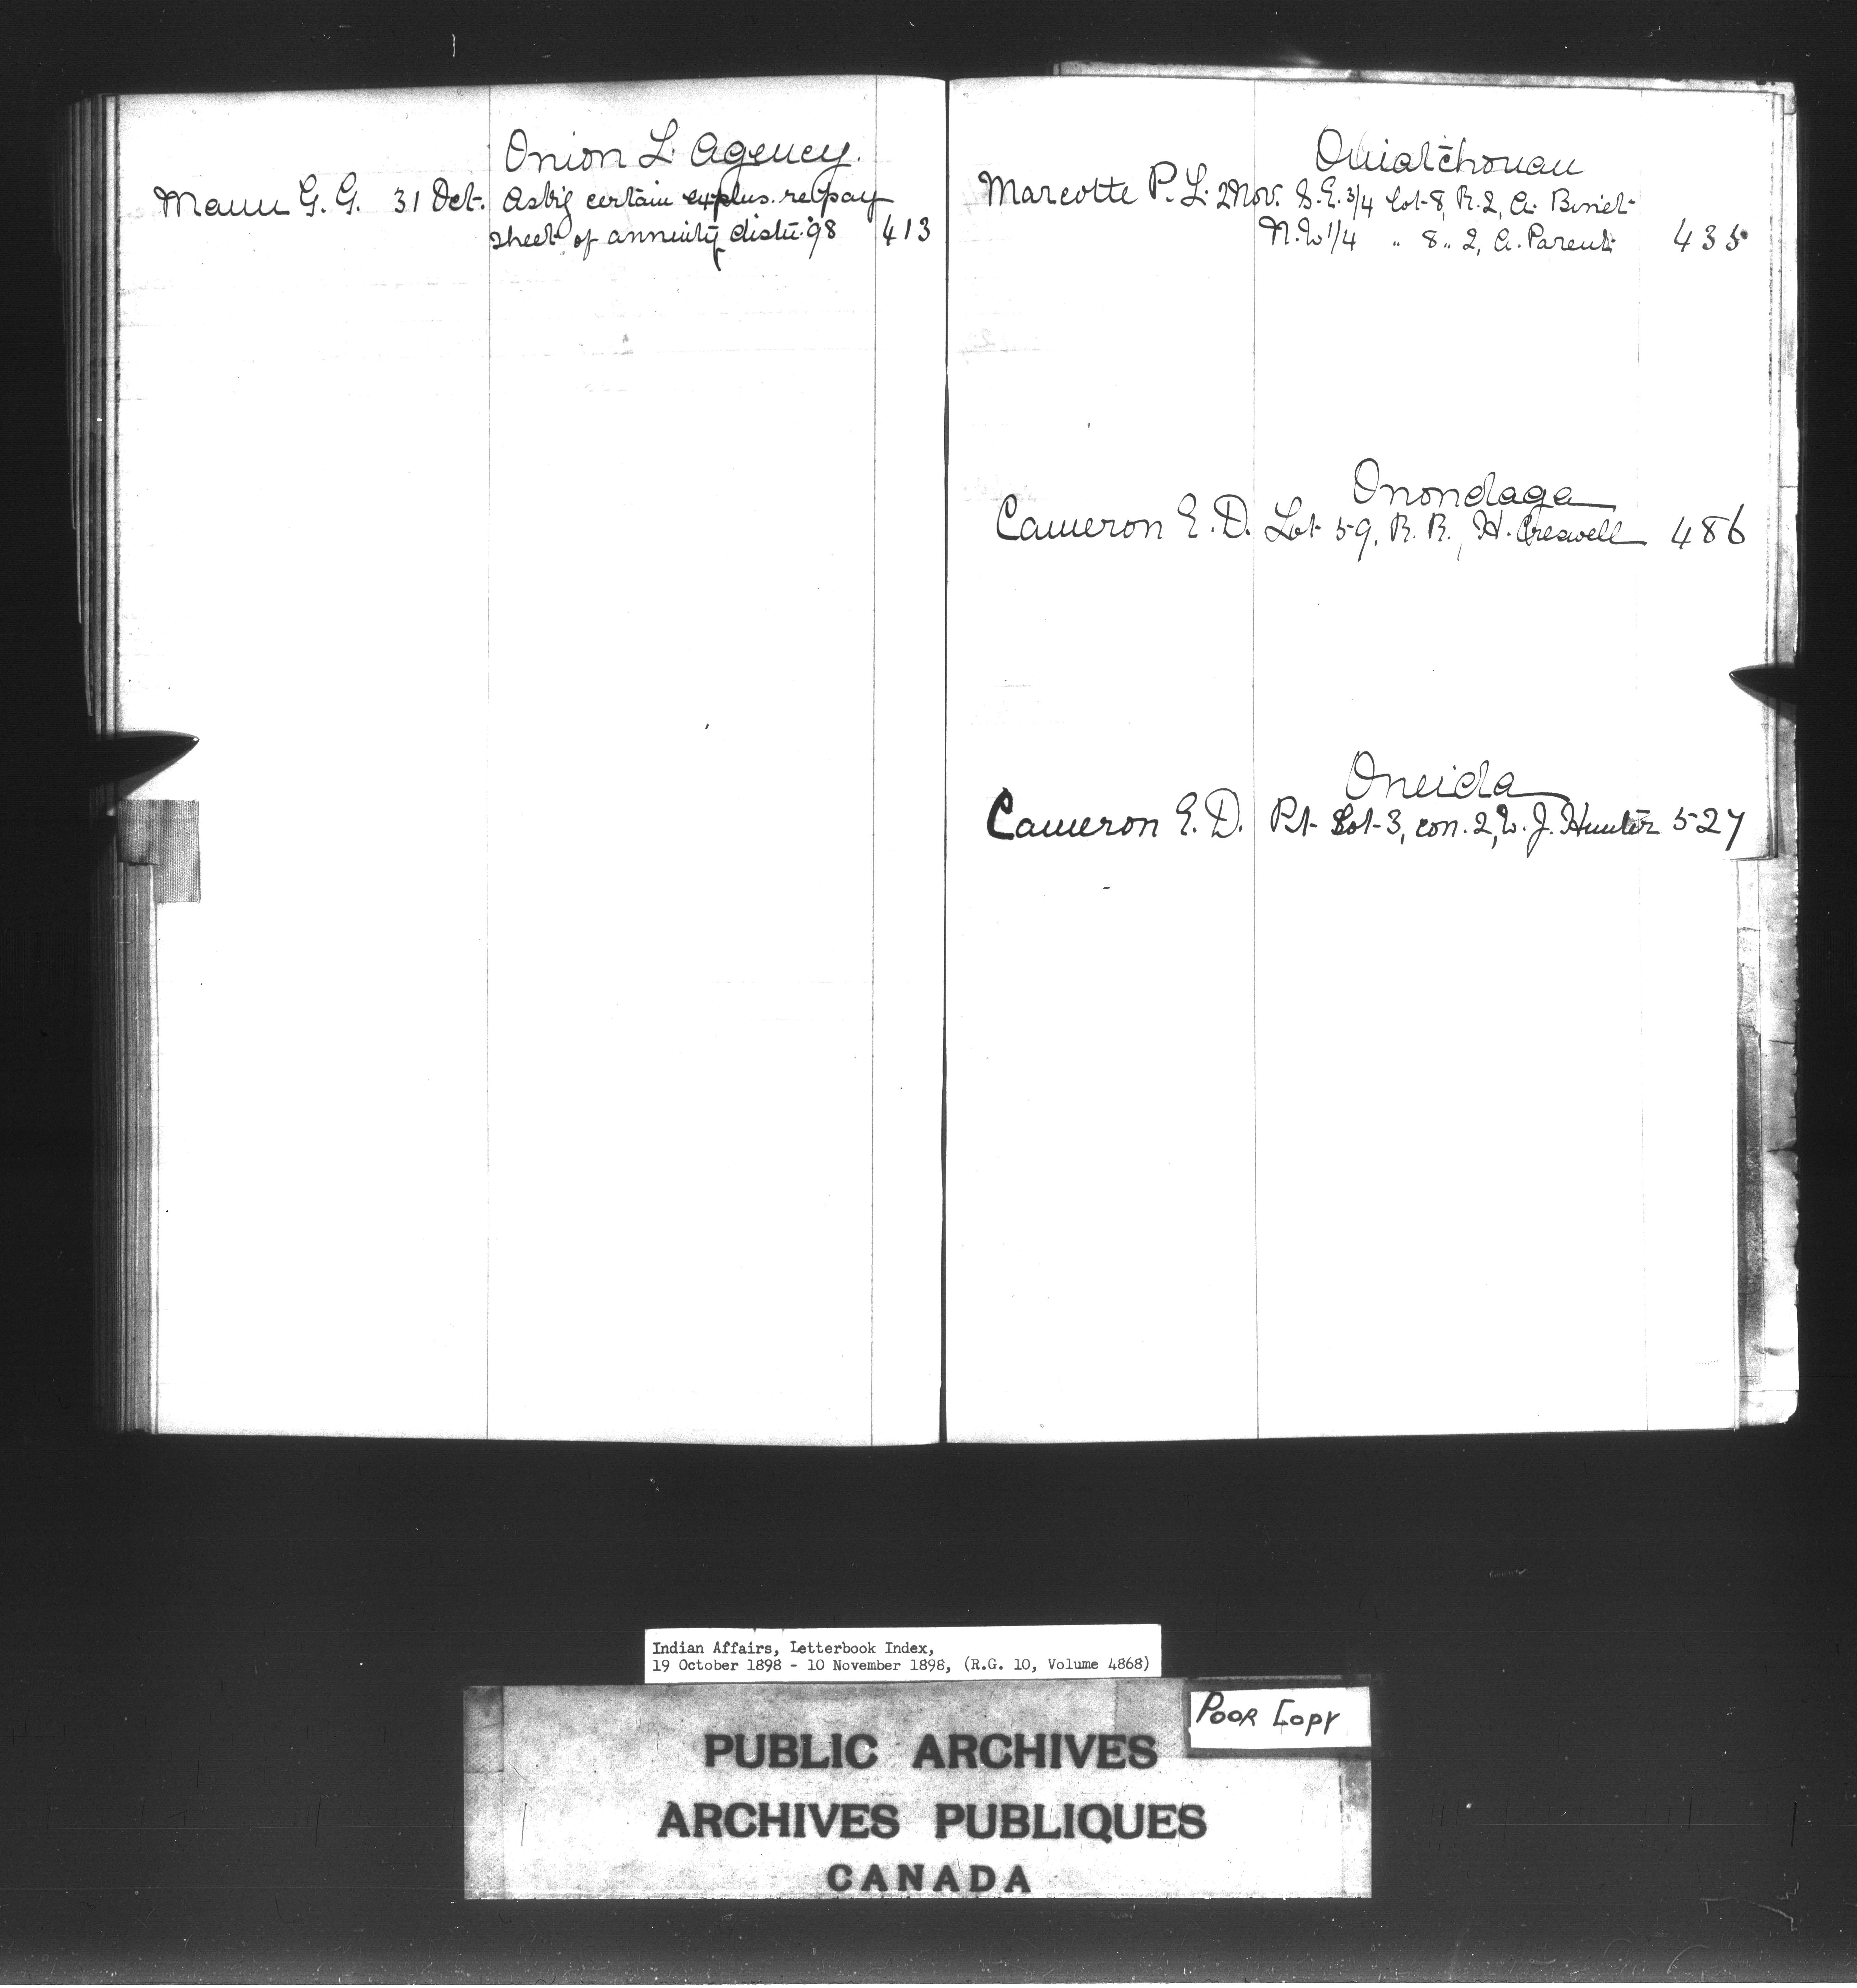 Onion L. Agency.
Mann G. G. 31 Oct. Ask'g certain explns. re pay
sheet of annuity distri. '98 413
Ouiatchouan
Marcotte P. L. 2 Nov. S.E. 3/4 Lot 8, R. 2, A. Binet
N.W 1/4 " 8 " 2, A. Parent 435
Onondaga
Cameron E. D. Lot 59, R. R., H. Creswell 486
Oneida
Cameron E. D. Pt. Lot 3, con. 2, W. J. Hunter 527
Indian Affairs, Letterbook Index,
19 October 1898 - 10 November 1898, (R.G. 10, Volume 4868)
POOR COPY
PUBLIC ARCHIVES
ARCHIVES PUBLIQUES
CANADA